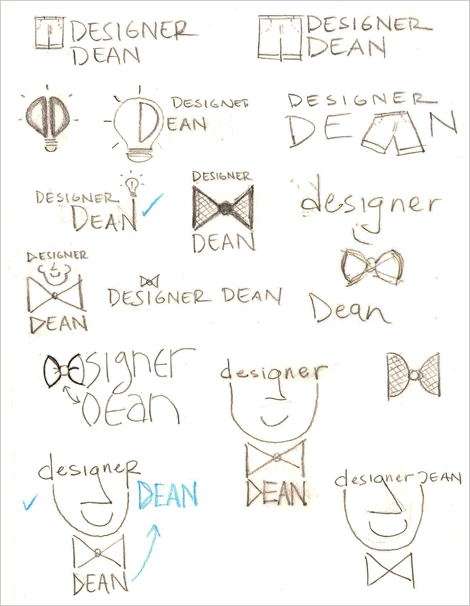 DESIGNER
DEAN
DESIGNER
DEAN
DESIGNER
DEAN
DESIGNER
DE N
DESIGNER
DEAN
DESIGNER
DEAN
designer
Dean
DESIGNER
DEAN
DESIGNER DEAN
signer
Dean
designer
DEAN
designer
DEAN
DEAN
designer DEAN